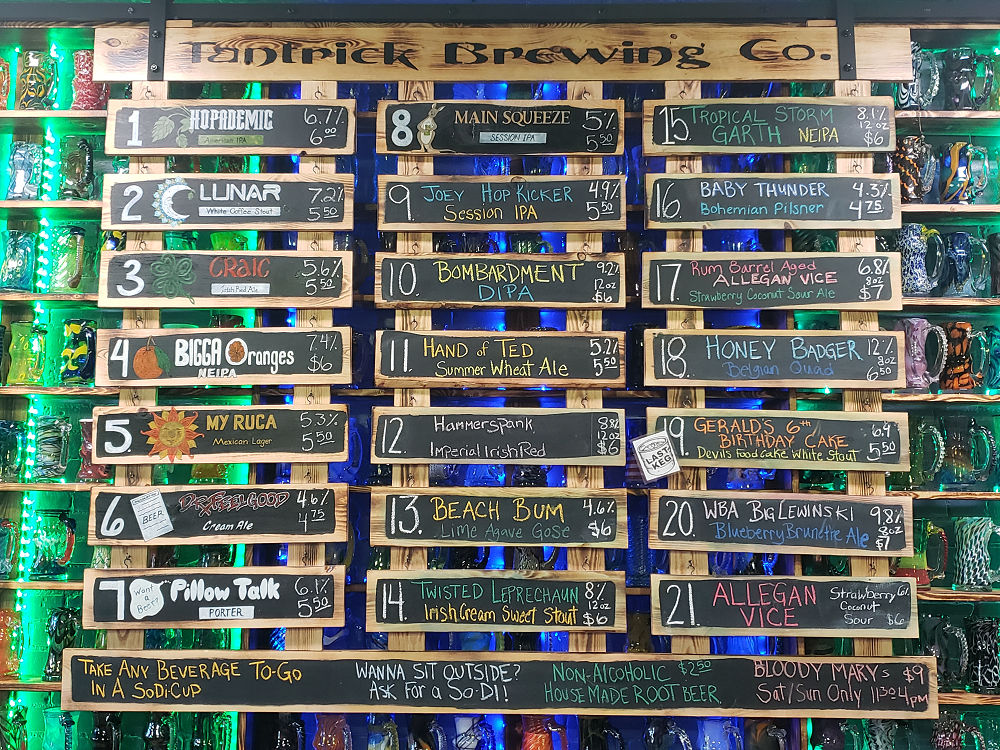 Tantrick Brewing Co.
1 HOPADEMIC 6.7%
American IPA 6.00
2 LUNAR 7.2%
White Coffee Stout 5.50
3 CRAIC 5.6%
Irish Red Ale 5.50
4 BIGGA ORANGES 7.4%
NEIPA $6
5. MY RUCA 5.3%
Mexican Lager 5.50
6 BEER DR FEELGOOD 4.6%
Cream Ale 4.75
7 Want a Beer? Pillow Talk 6.1%
PORTER 5.50
8 MAIN SQUEEZE 5%
SESSION IPA 5.50
9. JOEY HOP KICKER 4.9%
Session IPA 5.50
10. BOMBARDMENT 9.2%
DIPA 12oz
$6
11. HAND of TED 5.2%
Summer Wheat Ale 5.50
12. Hammerspank 8.8%
12oz
Imperial Irish Red $6
13. BEACH BUM 4.6%
Lime Agave Gose $6
14. TWISTED LEPRECHAUN 8%
12oz
Irish Cream Sweet Stout $6
15. TROPICAL STORM 8.1%
12oz
GARTH NEIPA $6
16. BABY THUNDER 4.3%
Bohemian Pilsner 4.75
17. Rum Barrel Aged 6.8%
ALLEGAN VICE 8oz
Strawberry Coconut Sour Ale $7
18. HONEY BADGER 12%
8oz
Belgian Quad 6.50
LAST KEG
19. GERALD'S 6th 6.9%
BIRTHDAY CAKE
Devils Food Cake White Stout 5.50
20. WBA BIG LEWINSKI 9.8%
8oz
Blueberry Brunette Ale $7
21. ALLEGAN VICE
Strawberry
Coconut
Sour $6
TAKE ANY BEVERAGE TO-GO
IN A SODI-CUP
WANNA SIT OUTSIDE?
ASK FOR A SO DI!
NON-ALCOHOLIC $2.50
HOUSE MADE ROOT BEER
BLOODY MARYs $9
Sat/Sun Only 11:30-4pm